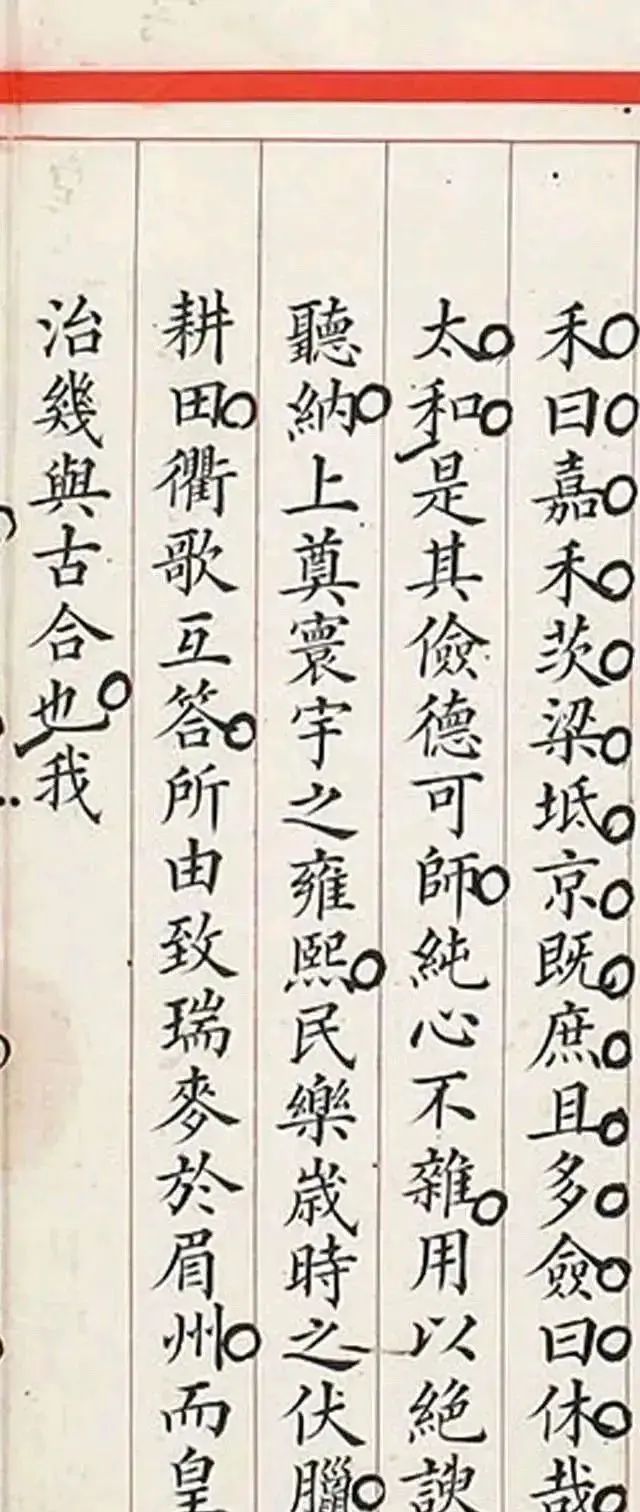 禾曰嘉禾茨梁坻京既庶且多僉曰休哉
太和是其儉德可師純心不雜用以絕諛
聽納上奠寰宇之雍熙民樂歲時之伏臘
耕田衢歌互答所由致瑞麥於眉州而皇
治幾與古合也我